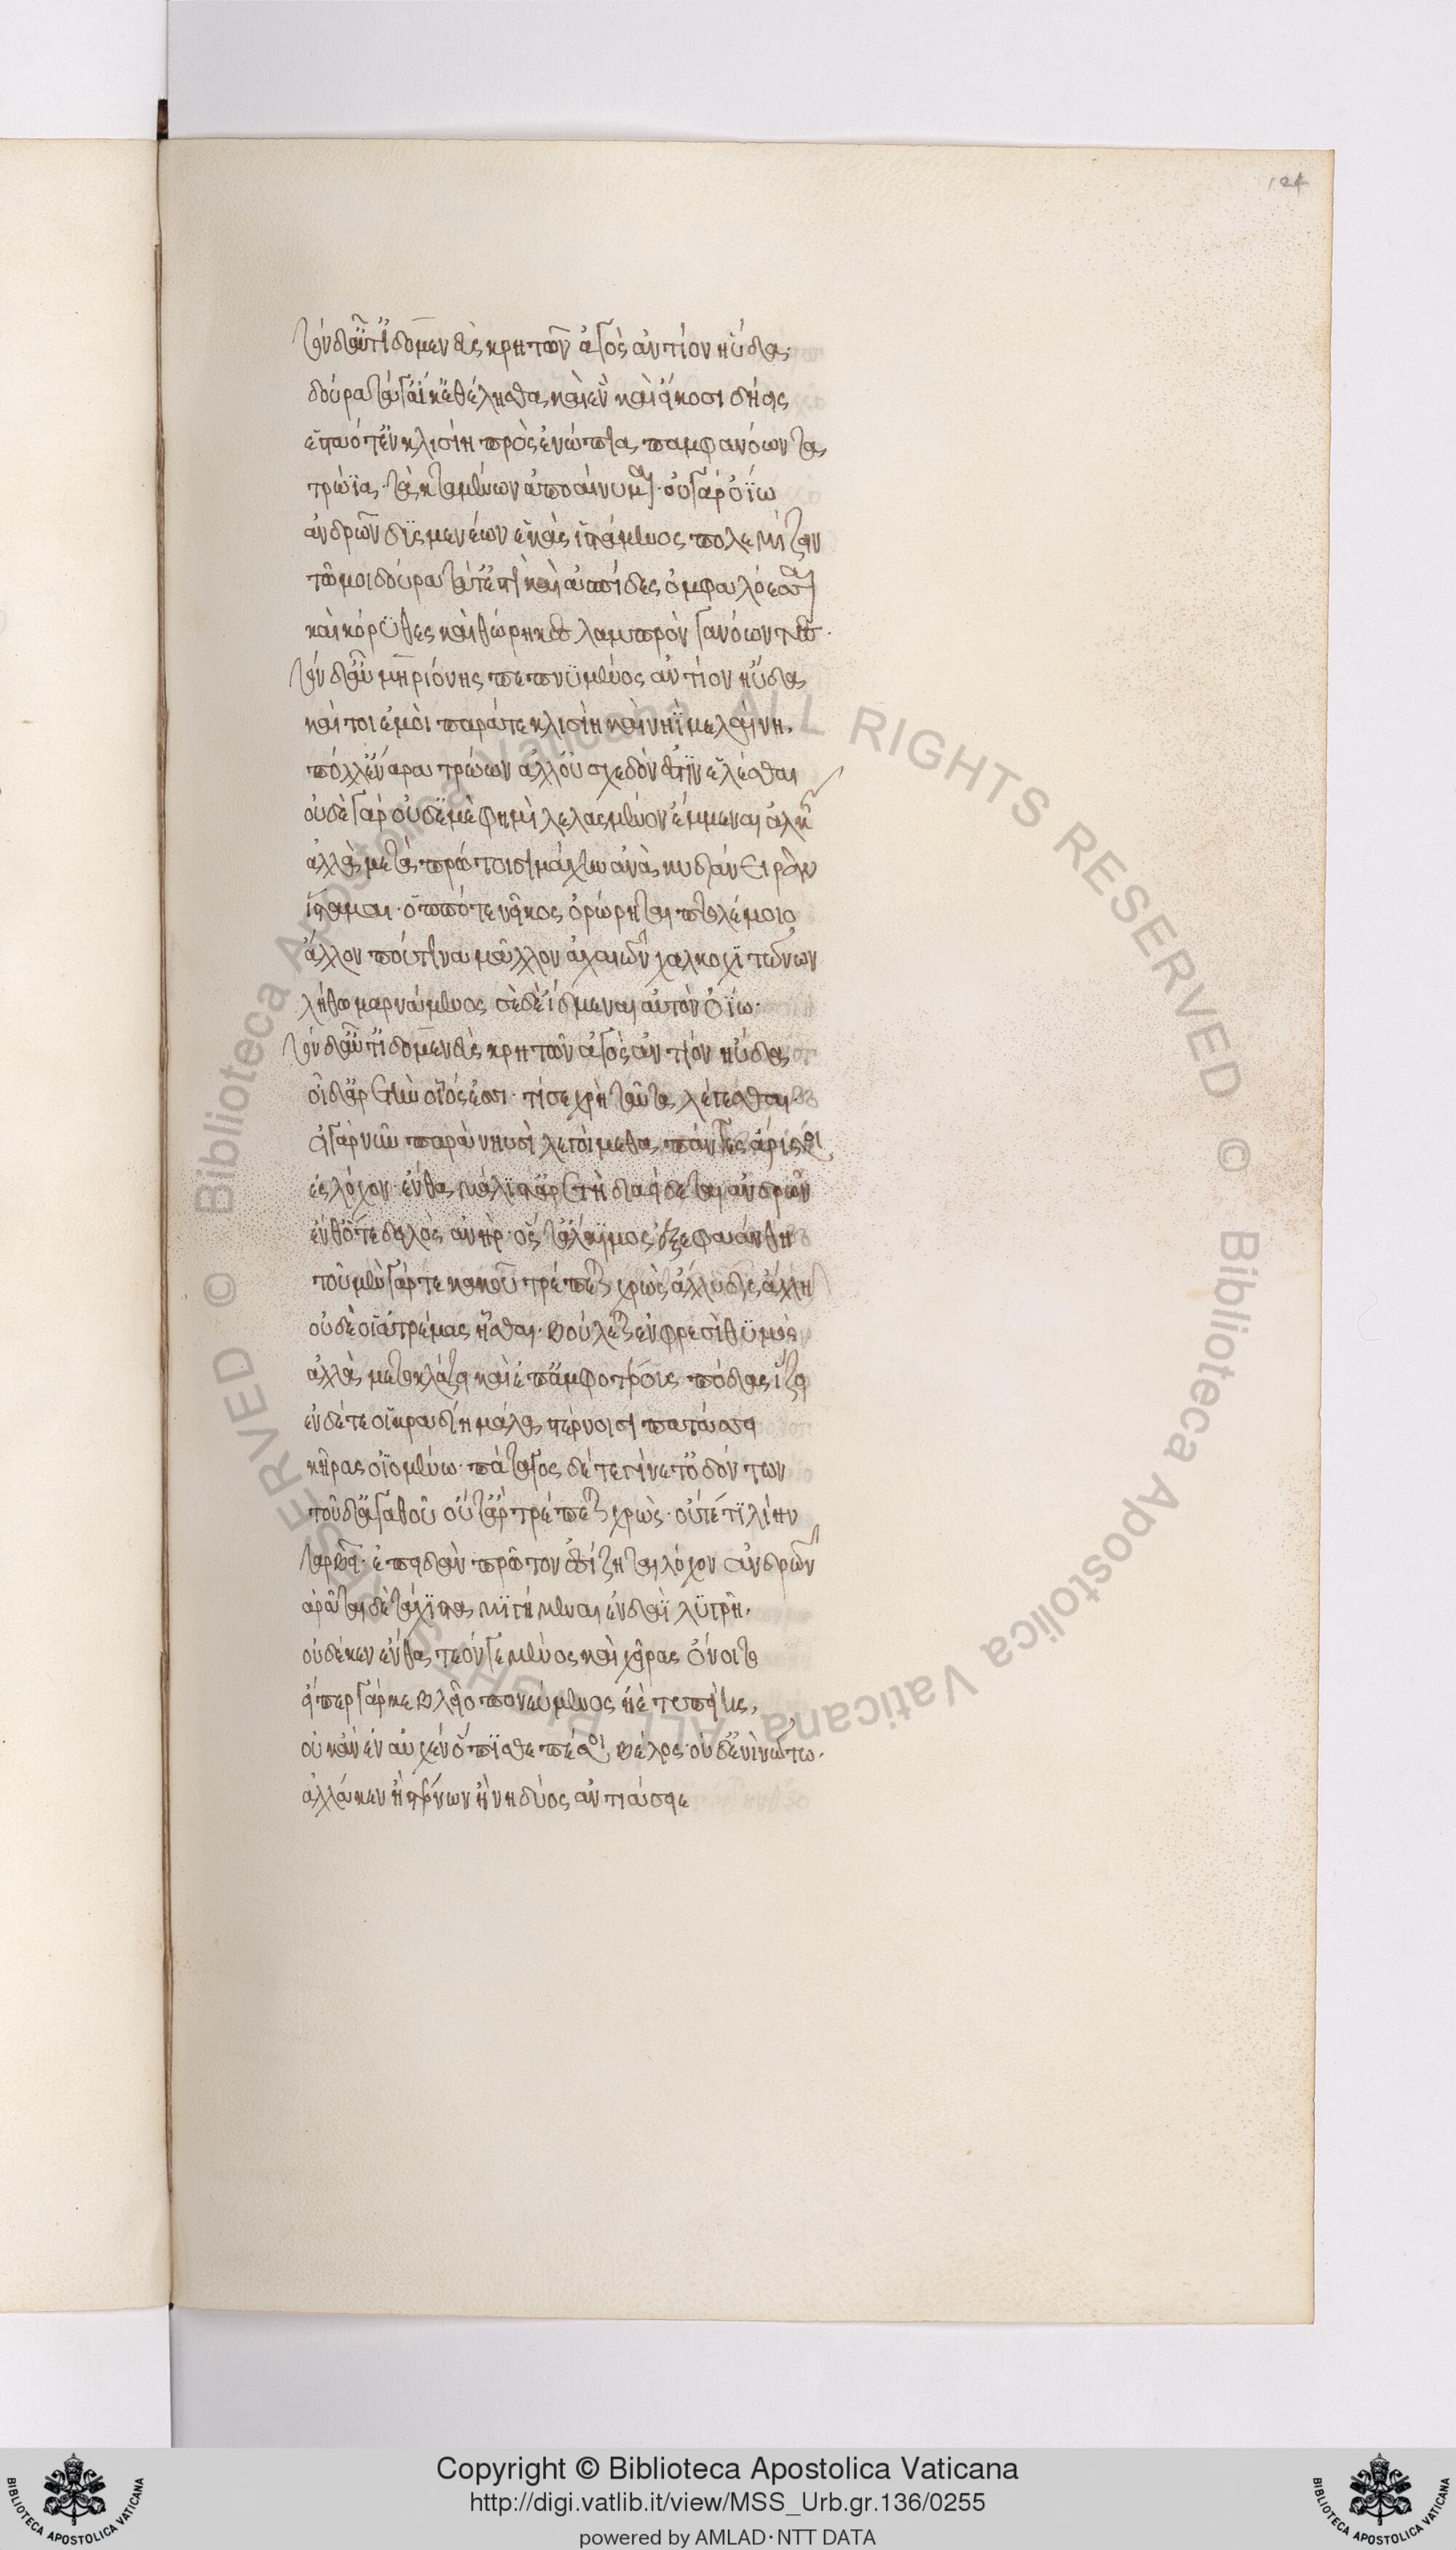 124
τὸν δ' αὖτ' ἰδομενεὺς κρητῶν ἀγὸς ἀντίον ηὔδα·
δούρατα δ' αἴ κ' ἐθέλησθα, καὶ ἓν καὶ εἴκοσι δήεις
ἑσταότ' ἐν κλισίη πρὸς ἐνώπια παμφανόωντα,
τρώϊα· τὰ κταμένων ἀποαίνυμαι· οὐ γὰρ ὀΐω
ἀνδρῶν δυσμενέων ἑκὰς ἱστάμενος πολεμίζειν
τῶ μοι δούρατά τ' ἔστι καὶ ἀσπίδες ὀμφαλόεσσαι
καὶ κόρυθες καὶ θώρηκες λαμπρὸν γανόωντες·
τὸν δ' αὖ μηριόνης πεπνυμένος ἀντίον ηὔδα
καί τοι ἐμοὶ παρά τε κλισίη καὶ νηῒ μελαίνη,
πόλλ' ἔναρα τρώων ἀλλ' οὐ σχεδόν ἐστιν ἑλέσθαι
οὐδὲ γὰρ οὐδ' ἐμὲ φημὶ λελασμένον ἔμμεναι ἀλκῆς
ἀλλὰ μετὰ πρώτοισι μάχην ἀνὰ κυδιάνειραν
ἵσταμαι· ὁππότε νεῖκος ὀρώρηται πτολέμοιο
ἄλλον πού τινα μᾶλλον ἀχαιῶν χαλκοχιτώνων
λήθω μαρνάμενος σὲ δὲ ἴδμεναι αὐτὸν ὀΐω·
τὸν δ' αὖτ' ἰδομενεὺς κρητῶν ἀγὸς ἀντίον ηὔδα
οἶδ' ἀρετὴν οἷός ἐσσι· τί σε χρὴ ταῦτα λέγεσθαι·
εἰ γὰρ νῦν παρὰ νηυσὶ λεγοίμεθα πάντες ἄριστοι
ἐς λόχον· ἔνθα μάλιστ' ἀρετὴ διαείδεται ἀνδρῶν
ἔνθ' ὅ τε δειλὸς ἀνὴρ· ὅς τ' ἄλκιμος ἐξεφαάνθη
τοῦ μὲν γάρ τε κακοῦ τρέπεται χρὼς ἄλλυδις ἄλλη
οὐδέ οἱ ἀτρέμας ἧσθαι· βούλεται ἐν φρεσὶ θυμός
ἀλλὰ μετοκλάζει καὶ ἐπ' ἀμφοτέρους πόδας ἵζει
ἐν δέ τέ οἱ κραδίη μάλα στέρνοισι πατάσσει
κῆρας ὀϊομένω· πάταγος δέ τε γίνετ' ὀδόντων
τοῦ δ' ἀγαθοῦ οὔτ' ἂρ τρέπεται χρὼς· οὔτέ τι λίην
ταρβεῖ· ἐπειδὰν πρῶτον ἐσίζηται λόχον ἀνδρῶν
ἀρᾶται δὲ τάχιστα μιγήμεναι ἐν δαῒ λυγρῆ,
οὐδέ κεν ἔνθα τεόν γε μένος καὶ χεῖρας ὄνοιτο
εἴπερ γάρ κε βλεῖο πονεύμενος ἠὲ τυπείης,
οὐκ ἂν ἐν αὐχέν' ὄπισθε πέσοι βέλος· οὐδ' ἐνὶ νώτω·
ἀλλά κεν ἢ στέρνων ἢ νηδύος ἀντιάσειε
Copyright © Biblioteca Apostolica Vaticana
http://digi.vatlib.it/view/MSS_Urb.gr.136/0255
powered by AMLAD·NTT DATA